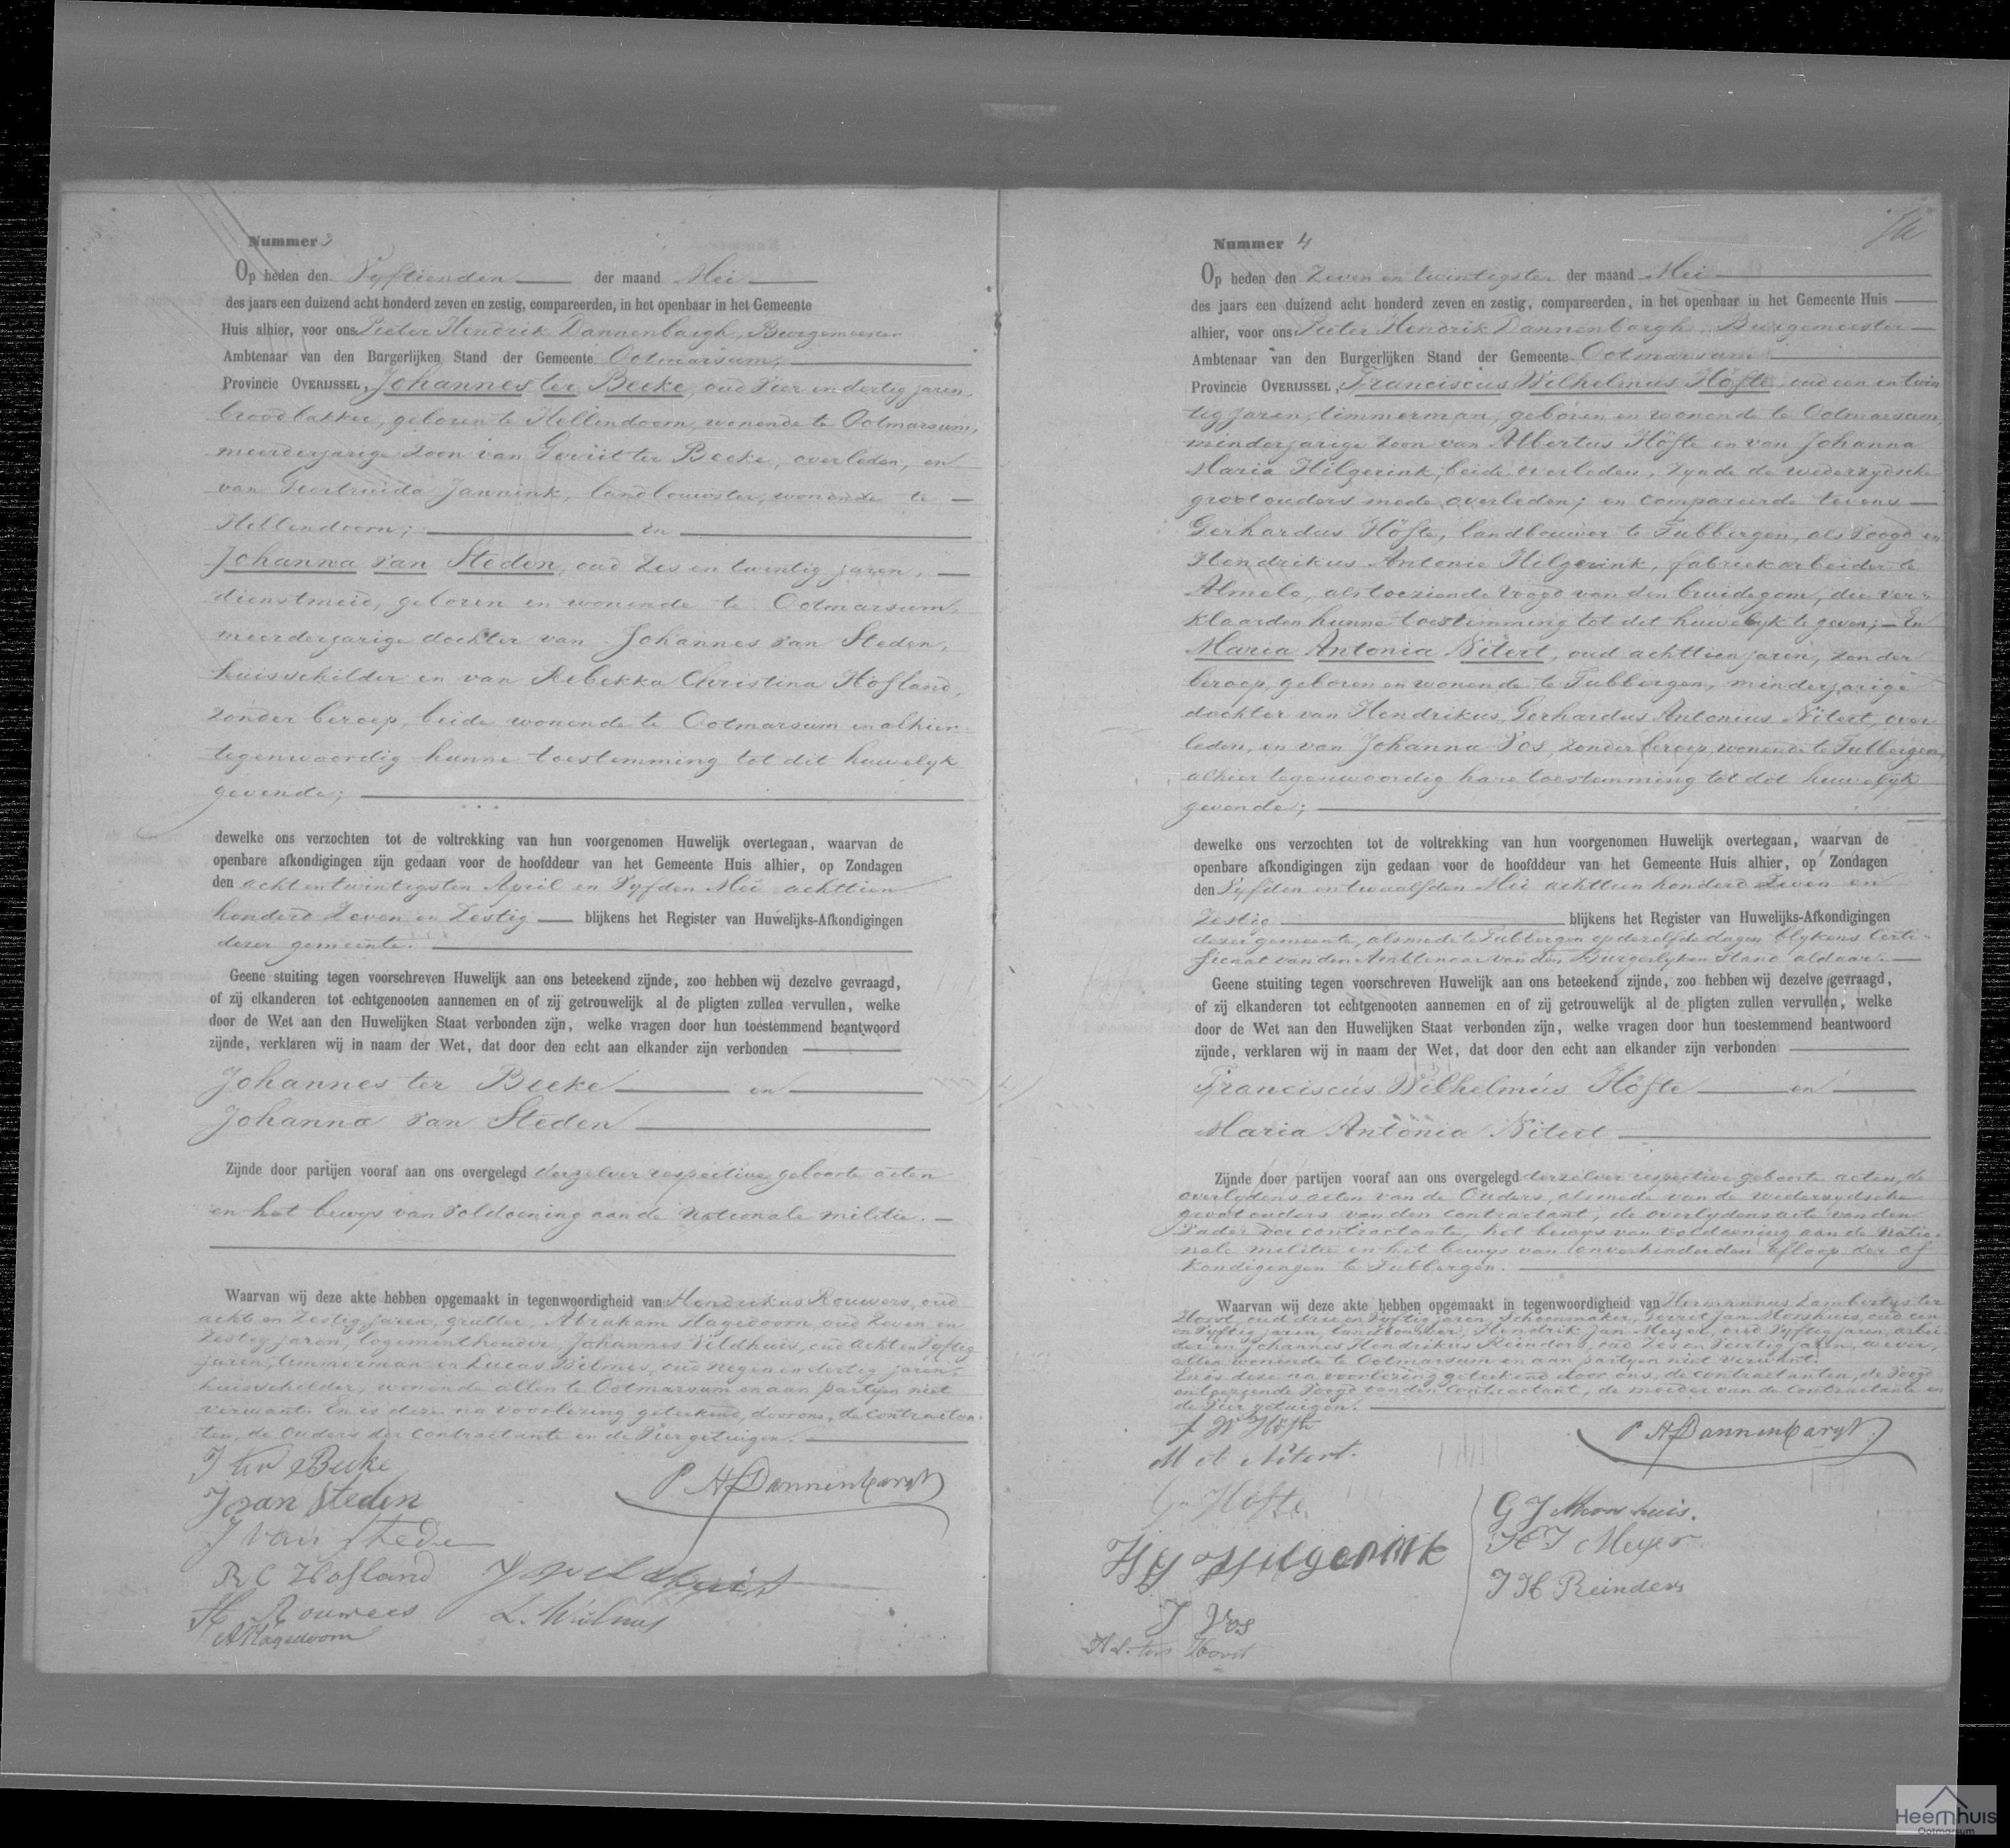 Nummer 3
Op heden den Vyftienden der maand Mei
des jaars een duizend acht honderd zeven en zestig, compareerden, in het openbaar in het Gemeente
Huis alhier, voor ons Pieter Hendrik Dannenbargh, Burgemeester
Ambtenaar van den Burgerlijken Stand der Gemeente Ootmarsum,
Provincie OVERIJSSEL, Johannes ter Beeke, oud vier en dertig jaren,
broodbakker, geboren te Hellendoorn, wonende te Ootmarsum,
meerderjarige zoon van Gerrit ter Beeke, overleden, en
van Geertruida Jannink, landbouwster, wonende te
Hellendoorn; en
Johanna van Steden, oud zes en twintig jaren,
dienstmeid, geboren en wonende te Ootmarsum,
meerderjarige dochter van Johannes van Steden,
huisschilder en van Rebekka Christina Hofland,
zonder beroep, beide wonende te Ootmarsum en alhier
tegenwoordig hunne toestemming tot dit huwelyk
gevende;
dewelke ons verzochten tot de voltrekking van hun voorgenomen Huwelijk overtegaan, waarvan de
openbare afkondigingen zijn gedaan voor de hoofddeur van het Gemeente Huis alhier, op Zondagen
den acht en twintigsten April en Vyfden Mei achttien
honderd zeven en zestig blijkens het Register van Huwelijks-Afkondigingen
dezer gemeente.
Geene stuiting tegen voorschreven Huwelijk aan ons beteekend zijnde, zoo hebben wij dezelve gevraagd,
of zij elkanderen tot echtgenooten aannemen en of zij getrouwelijk al de pligten zullen vervullen, welke
door de Wet aan den Huwelijken Staat verbonden zijn, welke vragen door hun toestemmend beantwoord
zijnde, verklaren wij in naam der Wet, dat door den echt aan elkander zijn verbonden
Johannes ter Beeke en
Johanna van Steden
Zijnde door partijen vooraf aan ons overgelegd derzelver respective geboorte acten
en het bewys van voldoening aan de nationale militie.
Waarvan wij deze akte hebben opgemaakt in tegenwoordigheid van Hendrikus Rouwers, oud
acht en zestig jaren, grutter, Abraham Hagedoorn oud zeven en
zestig jaren, logementhouder, Johannes Veldhuis, oud acht en vyftig
jaren, timmerman en Lucas Wilmes, oud negen en dertig jaren,
huisschilder, wonende allen te Ootmarsum en aan partyen niet
verwant. En is deze na voorlezing geteekend, door ons, de contractan-
ten, de Ouders der contractante en de vier getuigen.
J ter Beeke
P H Dannenbargh
J van Steden
J van Steden
R C Hofland
J Veldhuis
H Rouwers
L. Wilmes
A Hagedoorn
Nummer 4
Op heden den Zeven en twintigsten der maand Mei
des jaars een duizend acht honderd zeven en zestig, compareerden, in het openbaar in het Gemeente Huis
alhier, voor ons Pieter Hendrik Dannenbargh, Burgemeester
Ambtenaar van den Burgerlijken Stand der Gemeente Ootmarsum
Provincie OVERIJSSEL, Franciscus Wilhelmus Höfte, oud een en twin
tig jaren, timmerman, geboren en wonende te Ootmarsum,
minderjarige zoon van Albertus Höfte en van Johanna
Maria Hilgerink, beide overleden, zynde de wederzydsche
grootouders mede overleden; en compareerde tevens
Gerhardus Höfte, landbouwer te Tubbergen, als voogd en
Hendrikus Antonie Hilgerink, fabriekarbeider te
Almelo, als toeziende voogd van den bruidegom, die ver-
klaarden hunne toestemming tot dit huwelyk te geven; En
Maria Antonia Nitert, oud achttien jaren, zonder
beroep, geboren en wonende te Tubbergen, minderjarige
dochter van Hendrikus Gerhardus Antonius Nitert, over
leden, en van Johanna Vos, zonder beroep, wonende te Tubbergen,
alhier tegenwoordig hare toestemming tot dit huwelyk
gevende;
dewelke ons verzochten tot de voltrekking van hun voorgenomen Huwelijk overtegaan, waarvan de
openbare afkondigingen zijn gedaan voor de hoofddeur van het Gemeente Huis alhier, op Zondagen
den Vyfden en twaalfden Mei achttien honderd zeven en
zestig blijkens het Register van Huwelijks-Afkondigingen
dezer gemeente, alsmede te Tubbergen op dezelfde dagen blykens Certi-
ficaat van den Ambtenaar van den Burgerlyken stand aldaar.
Geene stuiting tegen voorschreven Huwelijk aan ons beteekend zijnde, zoo hebben wij dezelve gevraagd,
of zij elkanderen tot echtgenooten aannemen en of zij getrouwelijk al de pligten zullen vervullen, welke
door de Wet aan den Huwelijken Staat verbonden zijn, welke vragen door hun toestemmend beantwoord
zijnde, verklaren wij in naam der Wet, dat door den echt aan elkander zijn verbonden
Franciscus Wilhelmus Höfte en
Maria Antonia Nitert
Zijnde door partijen vooraf aan ons overgelegd derzelver respective geboorte acten, de
overlydens acten van de Ouders, alsmede van de wederzydsche
grootouders van den contractant, de overlydensacte van den
Vader der contractante, het bewys van voldoening aan de natio-
nale militie en het bewys van onverhinderden afloop der af
kondigingen te Tubbergen.
Waarvan wij deze akte hebben opgemaakt in tegenwoordigheid van Hermannus Lambertus ter
Horst, oud drie en vyftig jaren, schoenmaker, Gerrit Jan Morshuis, oud een
en vyftig jaren, landbouwer, Hendrik Jan Meyer, oud vyftig jaren, arbei
der en Johannes Hendrikus Reinders, oud zes en veertig jaren, wever,
allen wonende te Ootmarsum en aan partyen niet verwant.
En is deze na voorlezing geteekend door ons, de contractanten, de voogd
en toeziende voogd van den contractant, de moeder van de contractante en
de vier getuigen.
F W Höfte
P H Dannenbargh
M A Nitert.
G Höfte
G J Morshuis.
H A Hilgerink
H J Meyer
J H Reinders
J Vos
H L. ter Horst
Heemhuis
Ootmarsum